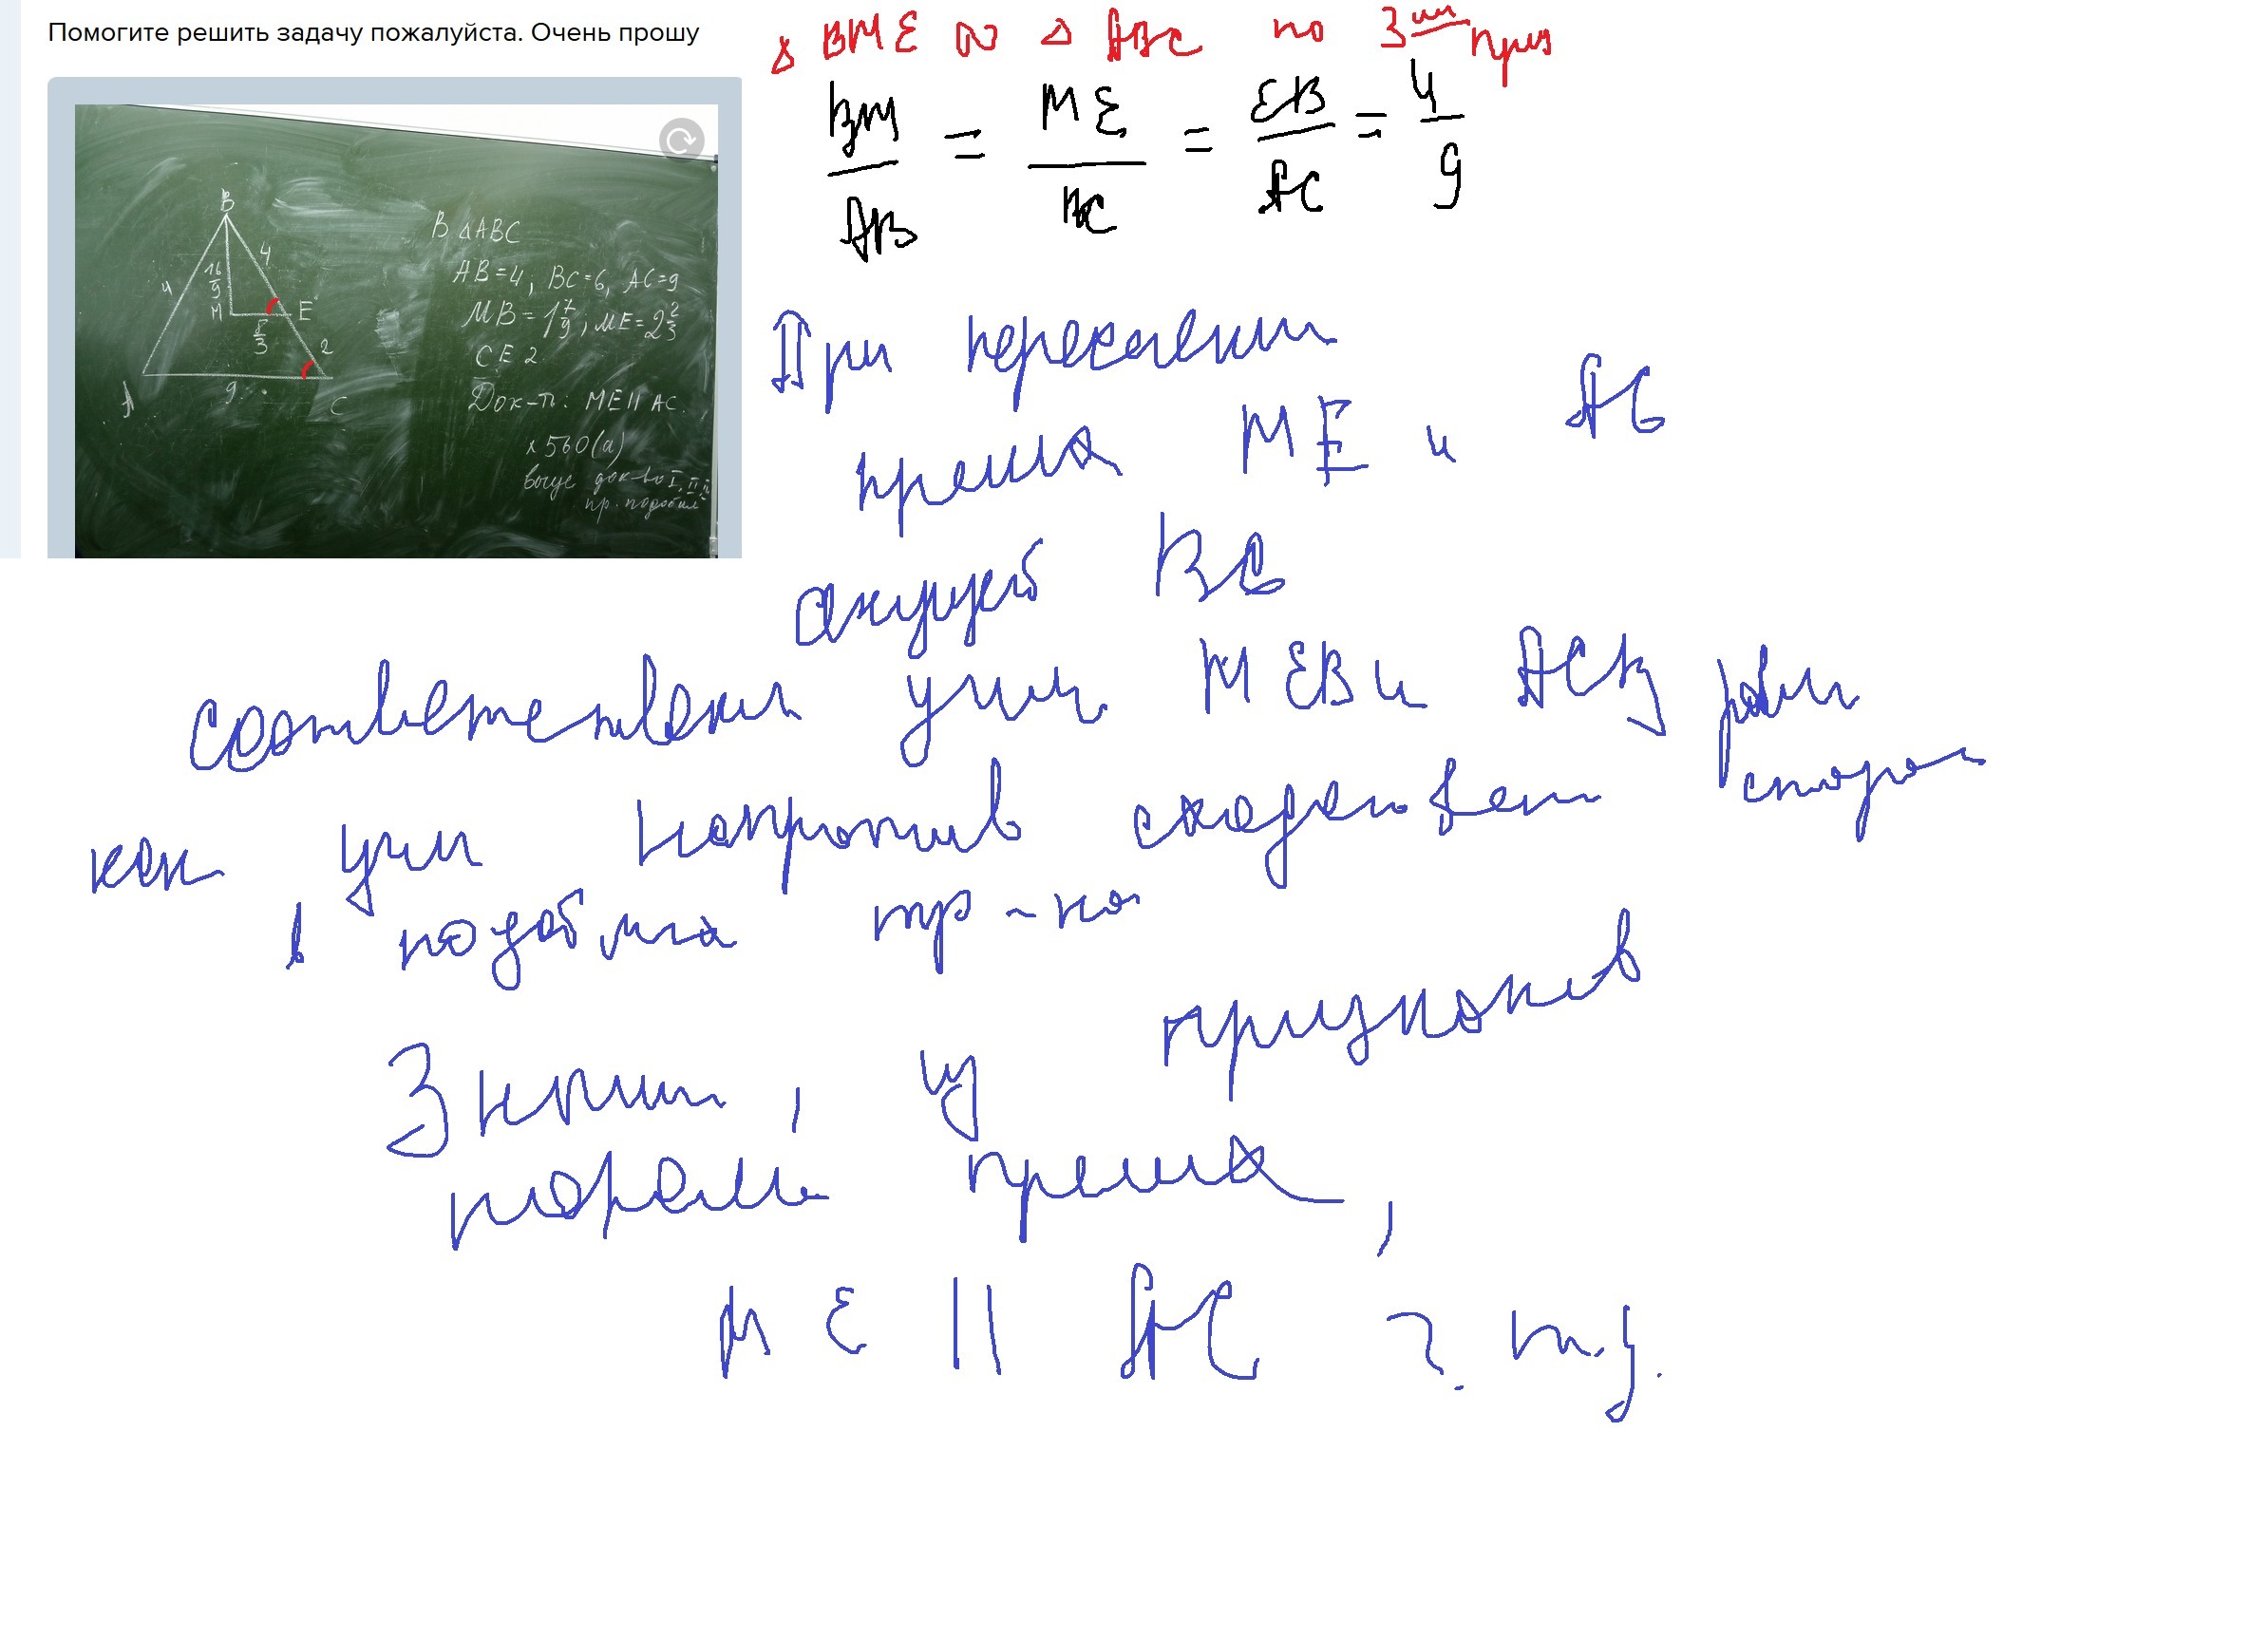 Помогите решить задачу пожалуйста. Очень прошу
В △ABC
AB=4, BC=6, AC=9
MB=1 7/9, ME=2 2/3
CE 2
Док-ть: ME || AC.
560(а)
выуч док-во I, II, III
пр. подобия
B
4
4
16/9
M
E
8/3
2
A
9
C
△ BME ∾ △ ABC по 3 приз
BM/AB = ME/BC = EB/AC = 4/9
При пересечении
прямых ME и AC
секущей BC
соответственные углы MEB и ACB равны
как углы напротив сходственных сторон
в подобных тр-ках
Значит, из признаков
паралл прямых,
ME || AC ч. т.д.